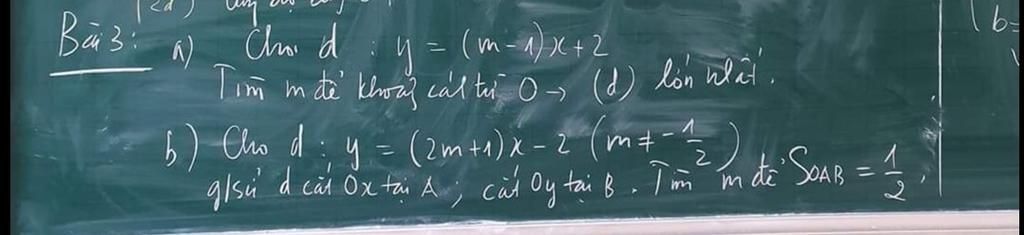 Bài 3: a) Cho d : y = (m-1)x+2
Tìm m để khoảng cách từ O → (d) lớn nhất.
b) Cho d : y = (2m+1)x - 2 (m ≠ -1/2)
g/sử d cắt Ox tại A ; cắt Oy tại B. Tìm m để S_OAB = 1/2.
(b=